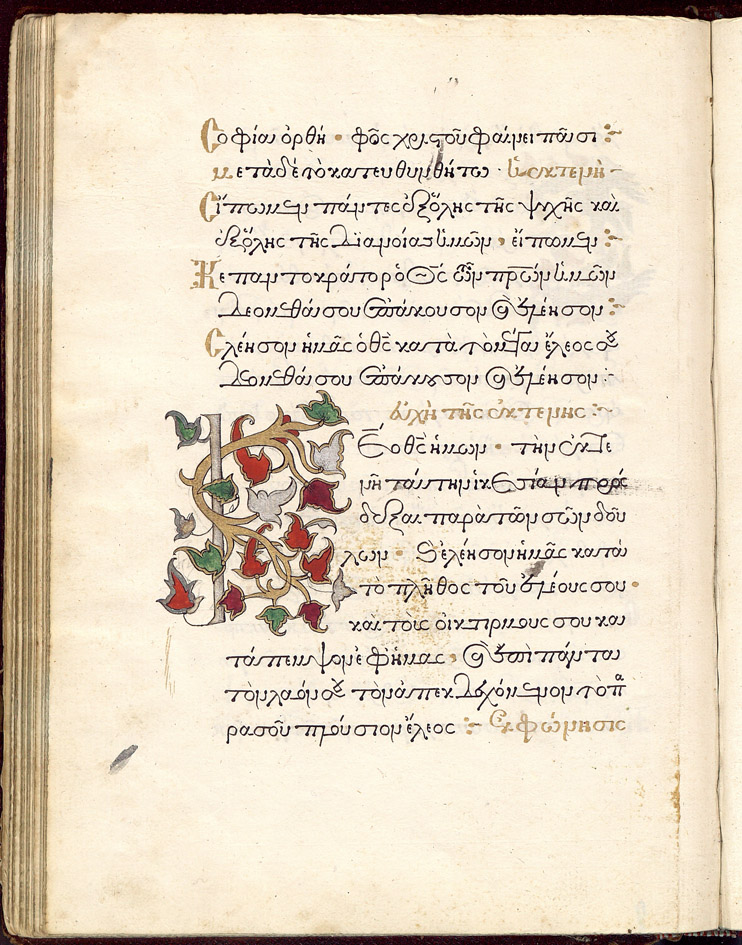 Σοφία ὀρθή · φῶς χριστοῦ φαίνει πᾶσι :~
μετὰ δὲ τὸ κατευθυνθήτω · ἡ ἐκτενὴ
Εἴπωμεν πάντες ἐξ ὅλης τῆς ψυχῆς καὶ
ἐξ ὅλης τῆς διανοίας ἡμῶν, εἴπωμεν :~
Κε παντοκράτορ ὁ Θς τῶν πρων ἡμῶν
δεόμεθά σου ἐπάκουσον καὶ ἐλέησον :~
Ελέησον ἡμᾶς ὁ θς κατὰ τὸ μέγα ἔλεός σου
δεόμεθά σου ἐπάκουσον καὶ ἐλέησον :
εὐχὴ τῆς ἐκτενῆς :~
Κε ὁ θς ἡμῶν · τὴν ἐκτε
νῆ ταύτην ἱκεσίαν πρόσ
δεξαι παρὰ τῶν σῶν δού
λων · καὶ ἐλέησον ἡμᾶς κατὰ
τὸ πλῆθος τοῦ ἐλέους σου ·
καὶ τοὺς οἰκτιρμούς σου κα
τάπεμψον ἐφ' ἡμᾶς, καὶ ἐπὶ πάντα
τὸν λαόν σου τὸν ἀπεκδεχόμενον τὸ πα
ρὰ σοῦ πλούσιον ἔλεος :~ Ἐκφώνησις